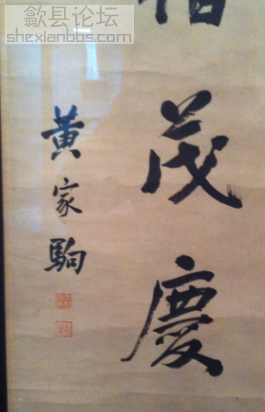 歙县论坛
shexianbbs.com
茂慶
黄家駒